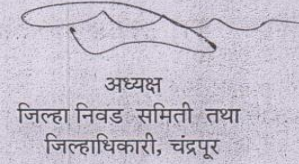 अध्यक्ष
जिल्हा निवड समिती तथा
जिल्हाधिकारी, चंद्रपूर